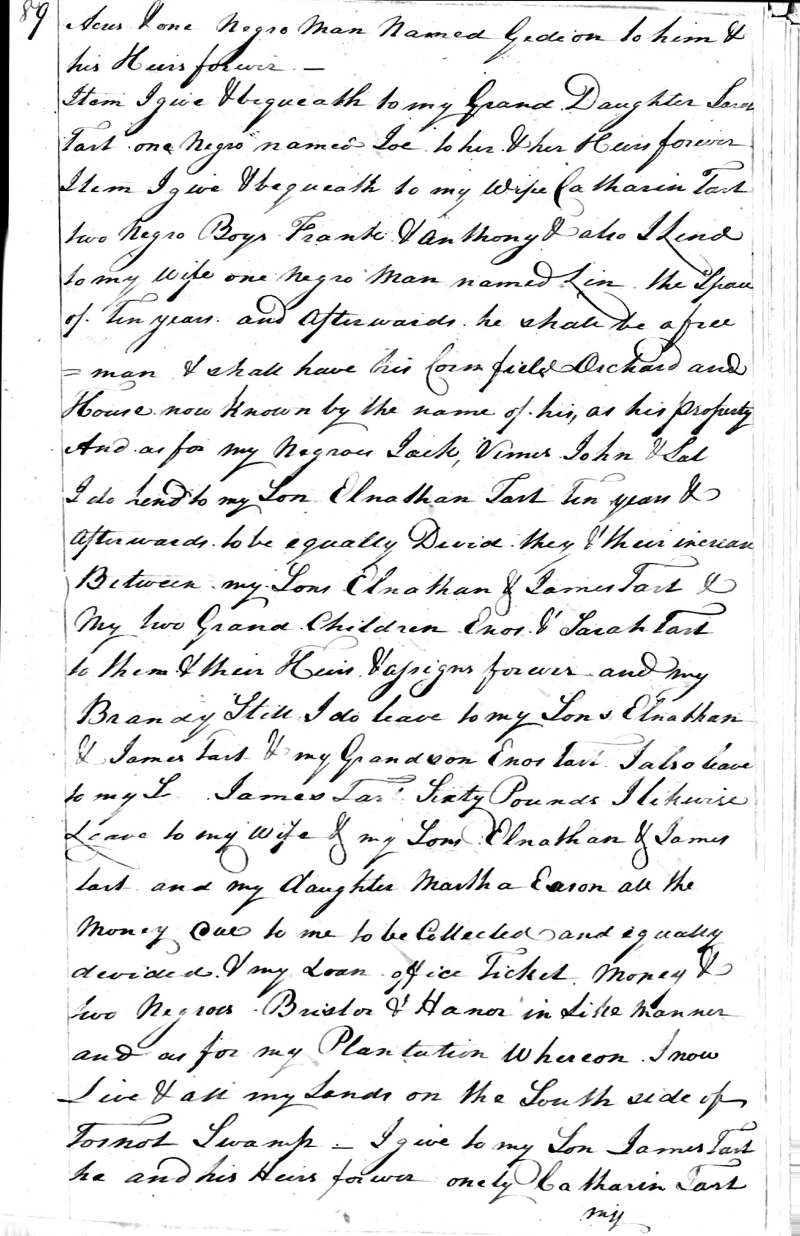 89
Acus & one Negro Man Named Gedion to him &
his Heirs forever —
Item I give & bequeath to my Grand Daughter Sarah
Tart one Negro named Joe to her & her Heirs forever
Item I give & bequeath to my Wife Catharin Tart
two Negro Boys Frank & Anthony & also I Lend
to my Wife one Negro Man named Lin the Space
of Ten years and Afterwards he shall be a free
=man & shall have his Cornfield Orchard and
House now known by the name of his, as his property
And as for my Negroes Jack, Vimer John & Sal
I do Lend to my Son Elnathan Tart Ten years &
Afterwards to be equally Devid they & their increase
Between my Sons Elnathan & James Tart &
My two Grand Children Enos & Sarah Tart
to them & their Heirs & assigns forever and my
Brandy Still I do leave to my Sons Elnathan
& James Tart & my Grandson Enos Tart I also leave
to my S James Tart Sixty Pounds I likwise
Leave to my Wife & my Sons Elnathan & James
Tart and my daughter Martha Eason all the
Money due to me to be Collected and equally
devided & my Loan office Ticket Money &
two Negroes Bristor & Hanor in Like Manner
and as for my Plantation Whereon I now
Live & all my Lands on the South side of
Tosnot Swamp – I give to my Son James Tart
he and his Heirs forever onely Catharin Tart
my